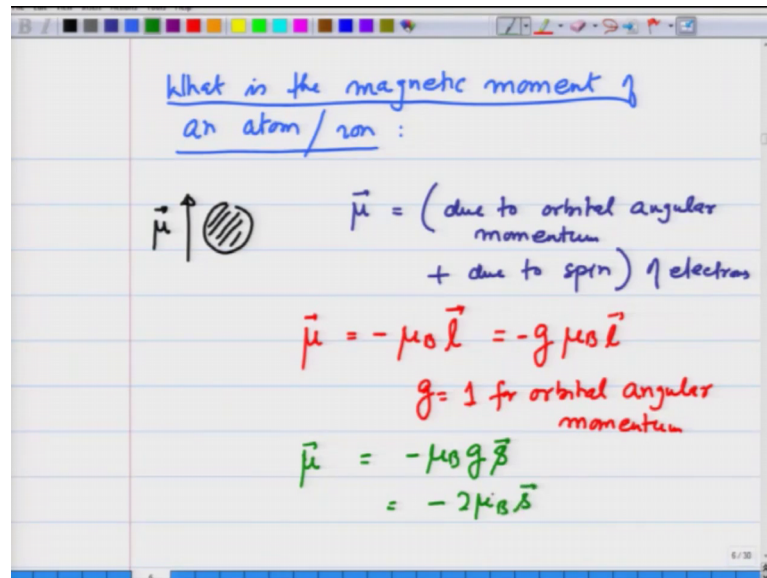 What is the magnetic moment of
an atom / ion :
μ⃗
μ⃗ = ( due to orbital angular
momentum
+ due to spin ) of electrons
μ⃗ = - μB l⃗ = - g μB l⃗
g = 1 for orbital angular
momentum
μ⃗ = - μB g s⃗
= - 2 μB s⃗
6/30